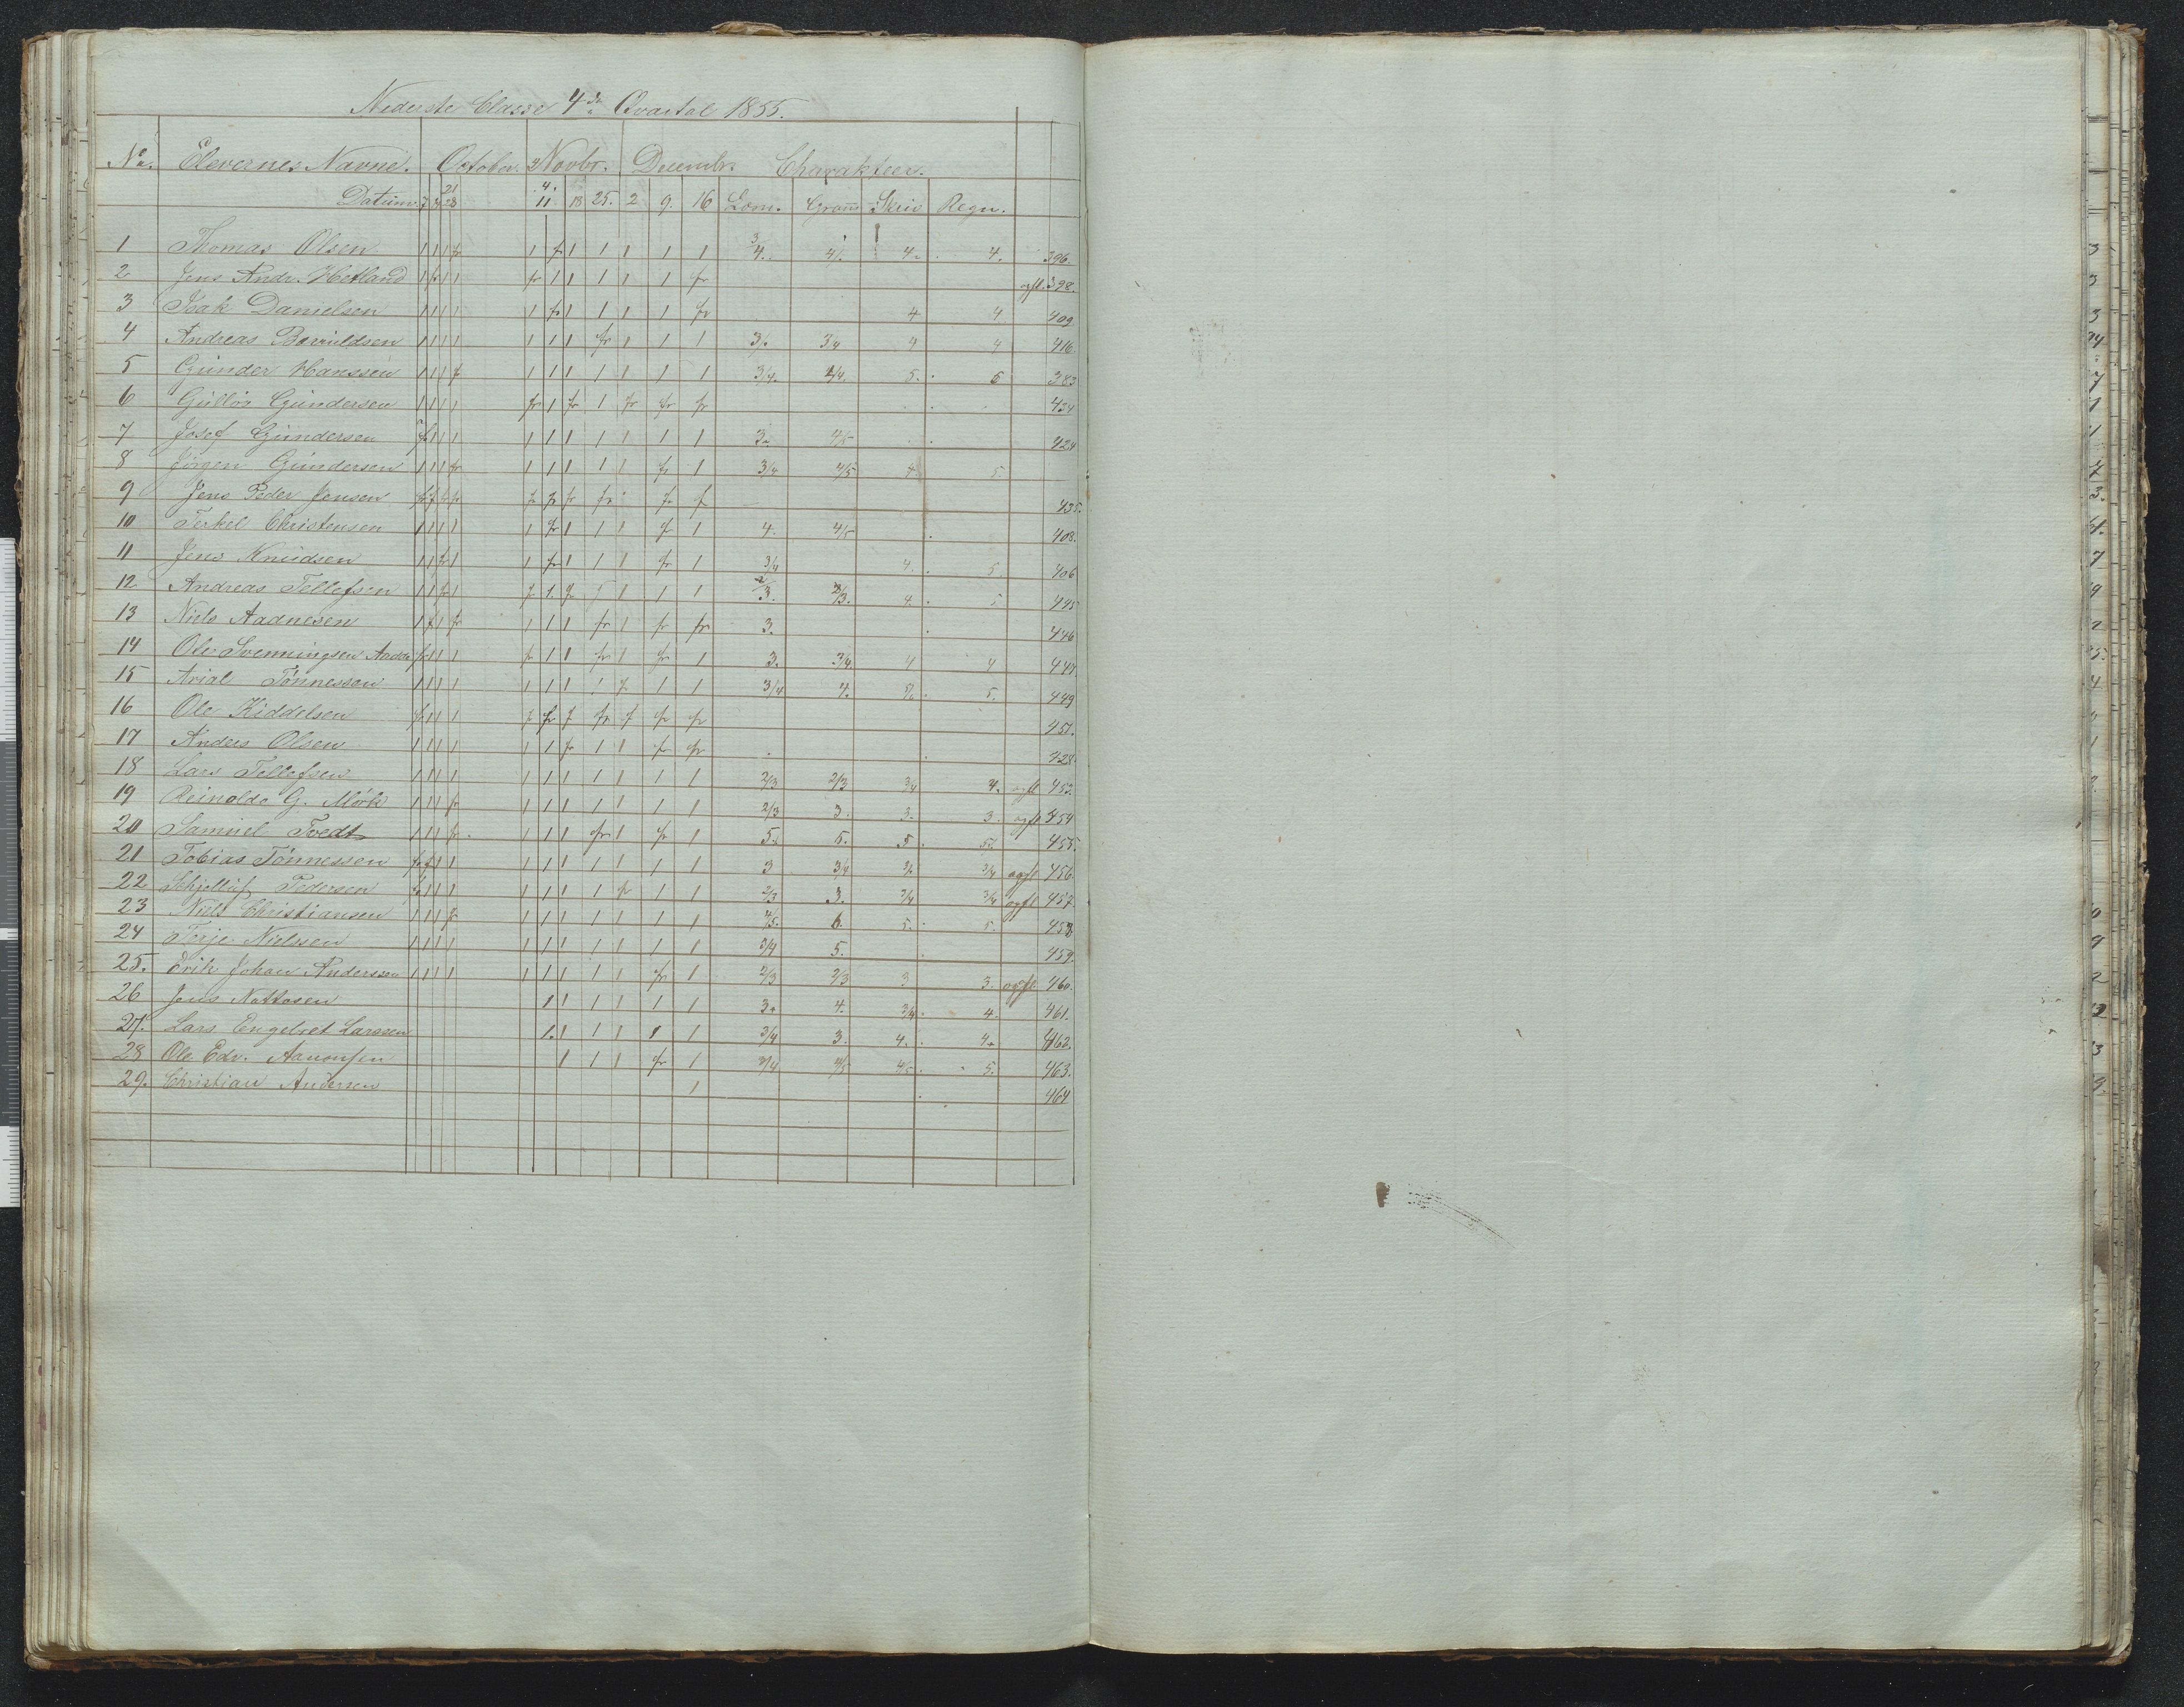 Nederste Classe 4de Qvartal 1855.
No. Elevernes Navne. October. Novbr. Decembr. Charakteer.
Datum. 7 14 21 28 4. 11 18 25. 2 9. 16 Læsn. Gram Skriv Regn.
1 Thomas Olsen 1 1 1 fr 1 fr 1 1 1 1 1 3/4. 4/. 4. 4. 396.
2 Jens Andr. Hetland 1 fr 1 1 fr 1 1 1 1 1 fr opfl. 398.
3 Isak Danielsen 1 1 1 1 1 fr 1 1 1 1 fr 4 4 409
4 Andreas Barruldsen 1 1 1 1 1 1 1 fr 1 1 1 3/. 3/4 4 4 416
5 Gunder Hanssen 1 1 1 f 1 1 1 1 1 1 1 3/4. 4/4. 5. 5 383
6 Gullov Gundersen 1 1 1 1 fr 1 fr 1 fr fr fr 424
7 Josef Gundersen fr 1 1 1 1 1 1 1 1 1 1 3. 4/5 424
8 Jörgen Gundersen 1 1 1 fr 1 1 1 1 1 fr 1 3/4 4/5 4. 5.
9 Jens Peder Jensen fr f fr fr fr fr fr fr fr f 435.
10 Terkel Christensen 1 1 1 1 1 fr 1 1 1 fr 1 4. 4/5 408.
11 Jens Knudsen 1 1 fr 1 1 fr 1 1 1 fr 1 3/4 4. 5. 406
12 Andreas Tellefsen 1 1 fr 1 f 1. f 1 1 1 1 2/3. 2/3. 4. 445
13 Niels Aadnesen 1 f 1 fr 1 1 1 fr 1 fr fr 3. 446
14 Ole Svenningsen fr 1 1 1 fr 1 1 fr 1 fr 1 3. 3/4. 4 4 447
15 Arial Tönnesson 1 1 1 1 1 1 1 1 f 1 1 3/4 4. 5/6 5. 449
16 Ole Kiddelsen fr 1 1 1 f fr f fr f fr fr 451.
17 Anders Olsen 1 1 1 1 1 1 fr 1 1 fr fr 428.
18 Lars Tellefsen 1 1 1 1 1 1 1 1 1 1 1 2/3 2/3 3/4 4. opfl 453.
19 Reinoldo G. Mörk 1 1 1 fr 1 1 1 1 1 1 1 2/3 3. 3. 3. opfl 454
20 Samuel Tvedt 1 1 1 fr. 1 1 1 fr 1 fr 1 5. 6. 5. 5. 455.
21 Tobias Tönnessen fr f 1 1 1 1 1 1 1 1 1 3 3/4 3/4 opfl 456.
22 Schjelluf Pedersen fr 1 1 1 1 1 1 1 fr 1 1 2/3 3. 3/4 3/4 opfl 457.
23 Niels Christiansen 1 1 1 fr 1 1 1 1 1 1 1 4/5. 6. 5. 5. 458
24 Terje Nielssen 1 1 1 1 1 1 1 1 1 1 1 3/4 5. 459.
25. Erik Johan Anderssen 1 1 1 1 1 1 1 1 1 fr 1 2/3 2/3 3 3. opfl 460.
26 Jens Nattosen 1 1 1 1 1 1 3. 4. 3/4. 4. 461.
27. Lars Engebret Larssen 1. 1 1 1 1 1 3/4 3. 4. 4. 462.
28 Ole Edv. Aanonsen 1 1 1 fr 1 3/4 4/5 4/5. 5. 463.
29. Christian Andersen 1 464